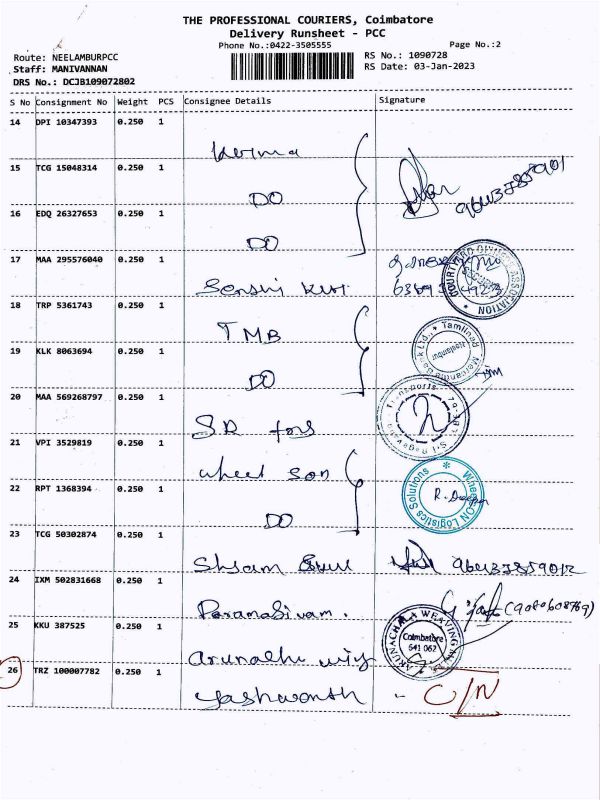 THE PROFESSIONAL COURIERS, Coimbatore
Delivery Runsheet - PCC
Phone No.:0422-3505555 Page No.:2
Route: NEELAMBURPCC RS No.: 1090728
Staff: MANIVANNAN RS Date: 03-Jan-2023
DRS No.: DCJB109072802
S No Consignment No Weight PCS Consignee Details Signature
14 DPI 10347393 0.250 1
15 TCG 15048314 0.250 1
DO
16 EDQ 26327653 0.250 1
DO
17 MAA 295576040 0.250 1
COURTYARD ASSOCIATION
18 TRP 5361743 0.250 1
TMB
Tamilnad Mercantile Bank Ltd., Neelambur
19 KLK 8063694 0.250 1
DO
20 MAA 569268797 0.250 1
Transports
21 VPI 3529819 0.250 1
wheel son
WheelSON Logistics Solutions
22 RPT 1368394 0.250 1
DO
23 TCG 50302874 0.250 1
Shyam
24 IXM 502831668 0.250 1
Paramasivam.
25 KKU 387525 0.250 1
ARUNACHALA WEAVING MILLS
Coimbatore
641 062
26 TRZ 100007782 0.250 1
Yashwanth - C/N